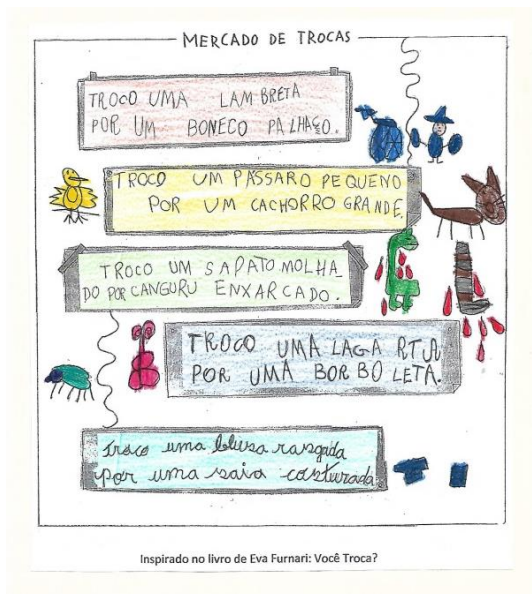 MERCADO DE TROCAS
TROCO UMA LAMBRETA
POR UM BONECO PALHAÇO.
TROCO UM PÁSSARO PEQUENO
POR UM CACHORRO GRANDE.
TROCO UM SAPATO MOLHA_
DO POR CANGURU ENXARCADO.
TROCO UMA LAGARTA
POR UMA BORBOLETA.
Troco uma blusa rasgada
por uma saia costurada
Inspirado no livro de Eva Furnari: Você Troca?